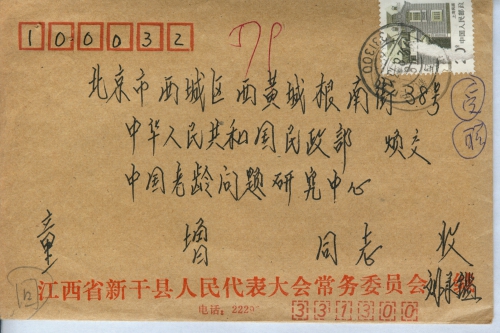 100032
79
中国人民邮政
20
北京市西城区西黄城根南街38号
中华人民共和国民政部 烦交
中国老龄问题研究中心
童增 同志 收
江西省新干县人民代表大会常务委员会
电话:222
331300